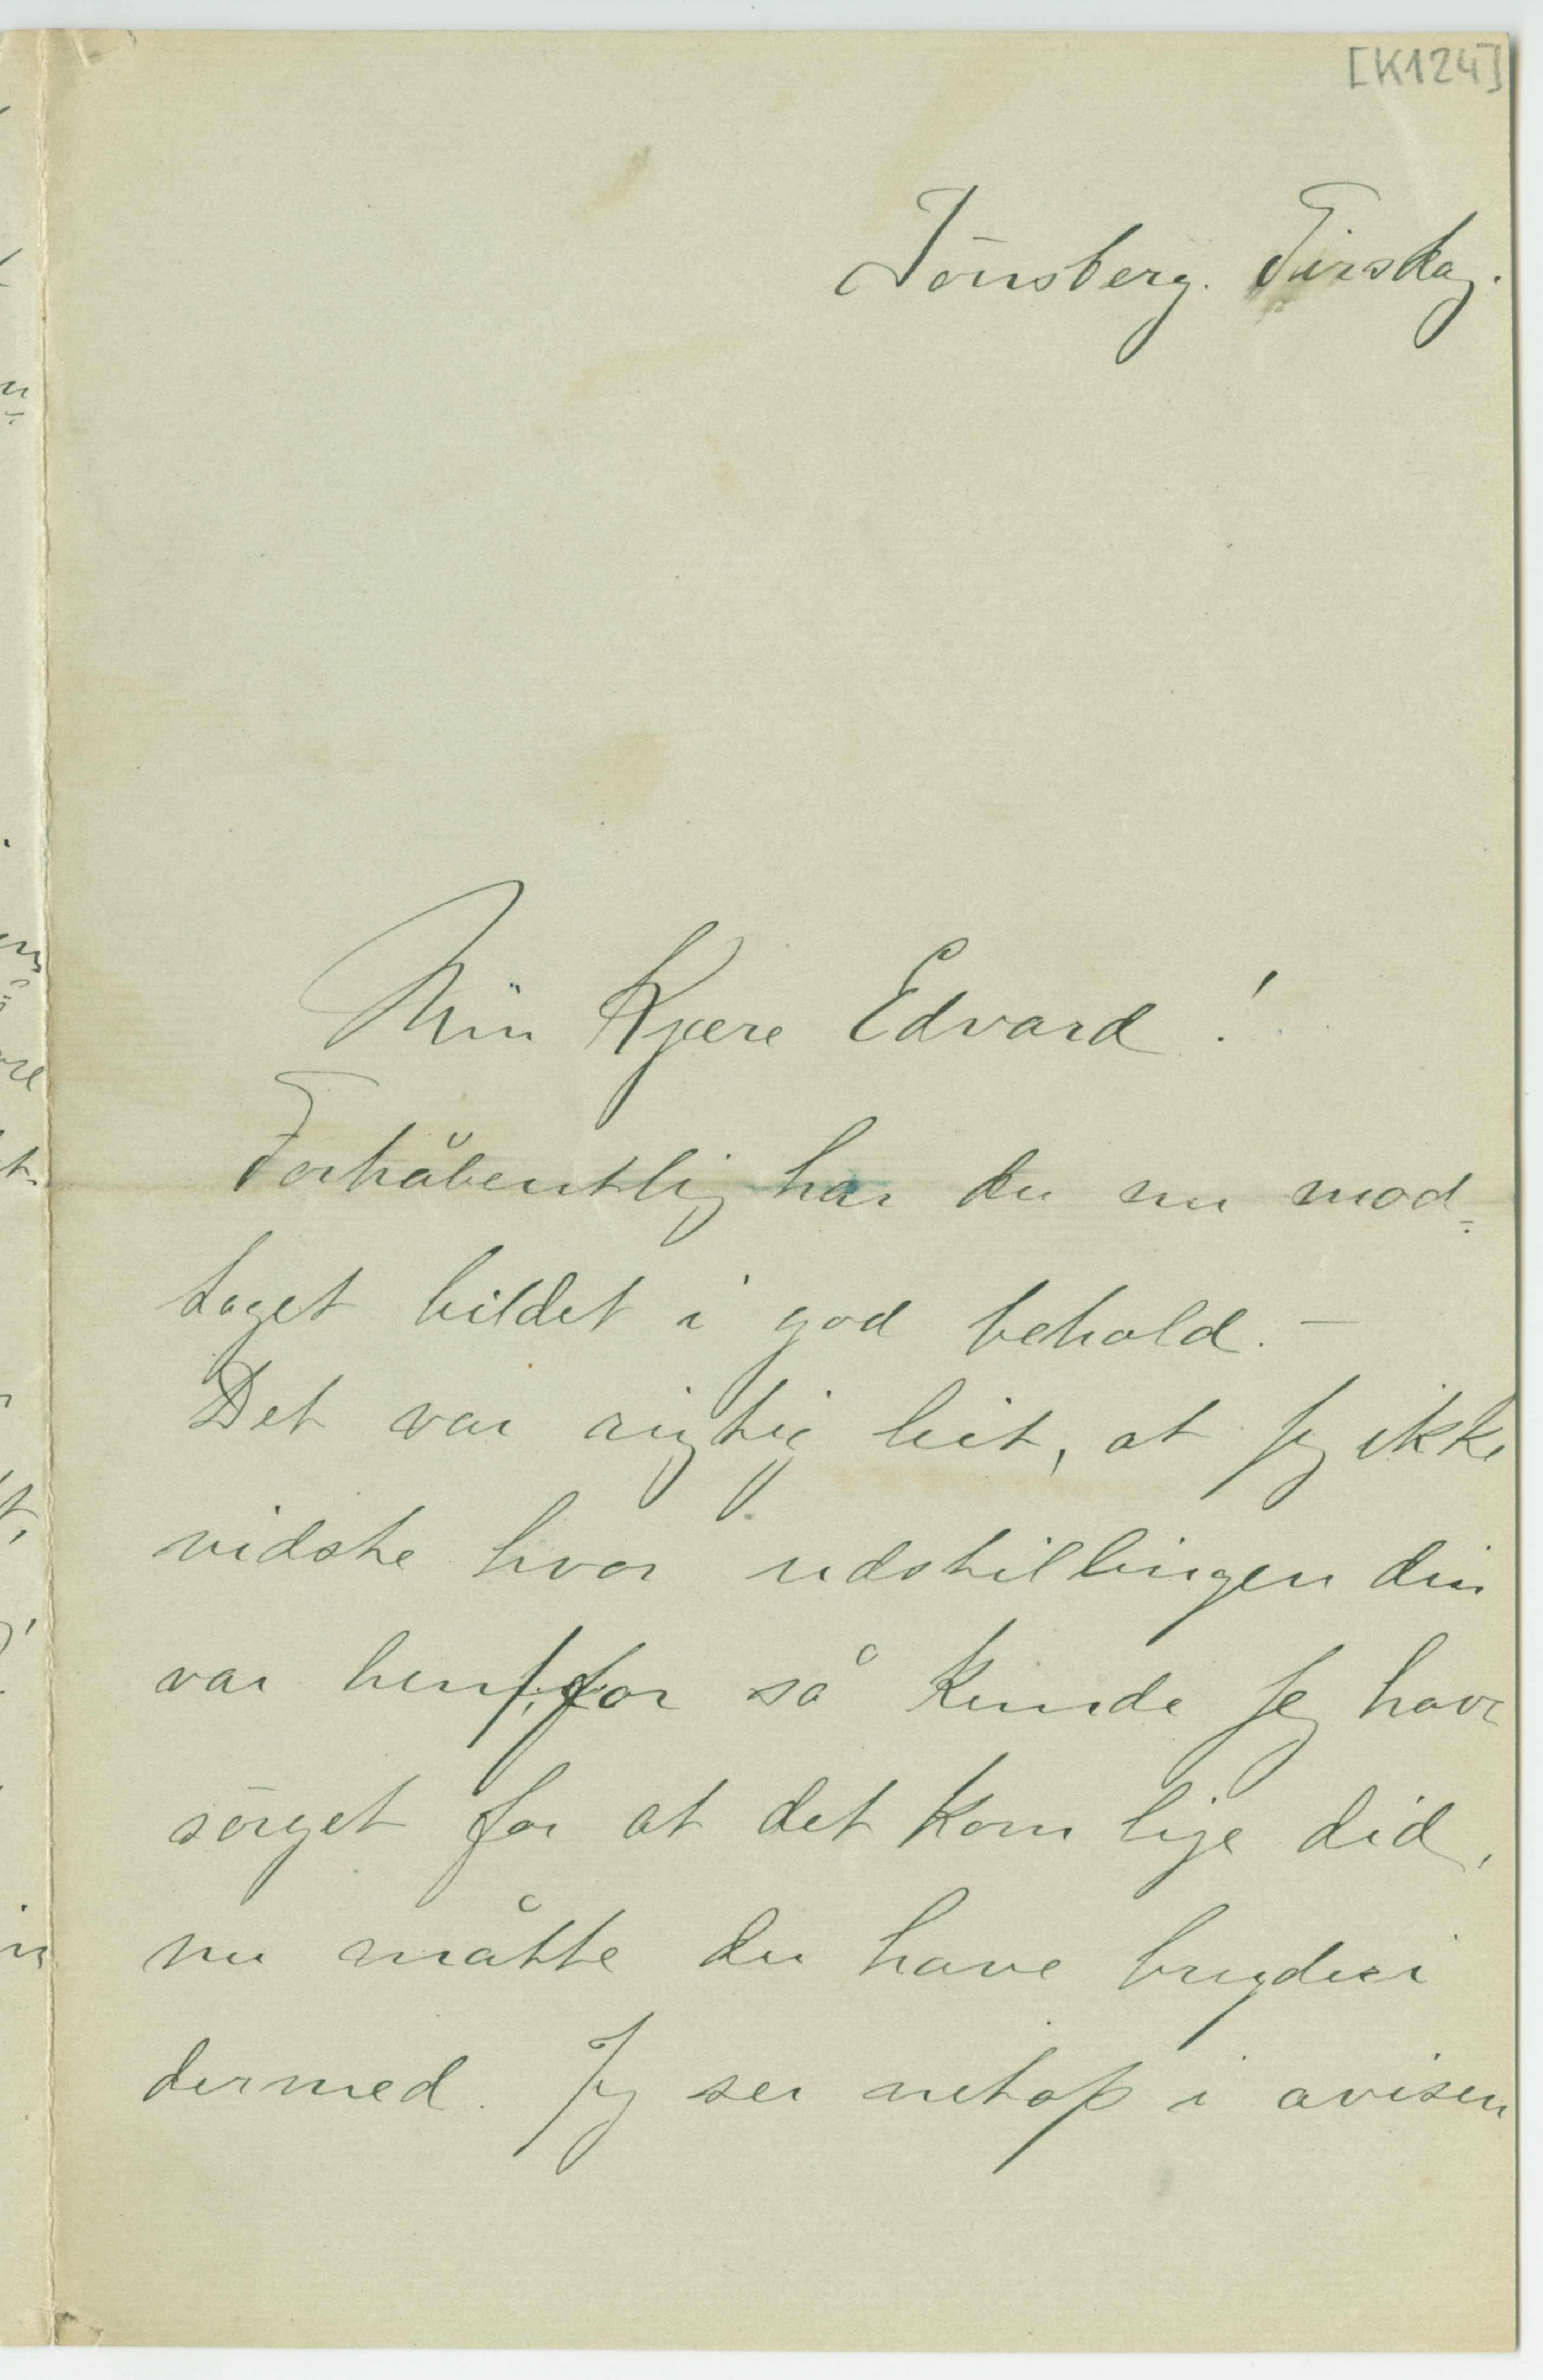 [K124]
Tönsberg. Tirsdag.
Min Kjære Edvard!
Forhåbentlig har du nu mod=
taget bildet i god behold. —
Det var rigtig leit, at jeg ikke
vidste hvor udstillingen din
var hen, for så kunde jeg have
sörget for at det kom lige did,
nu måtte du have bryderi
dermed. Jeg ser netop i avisen